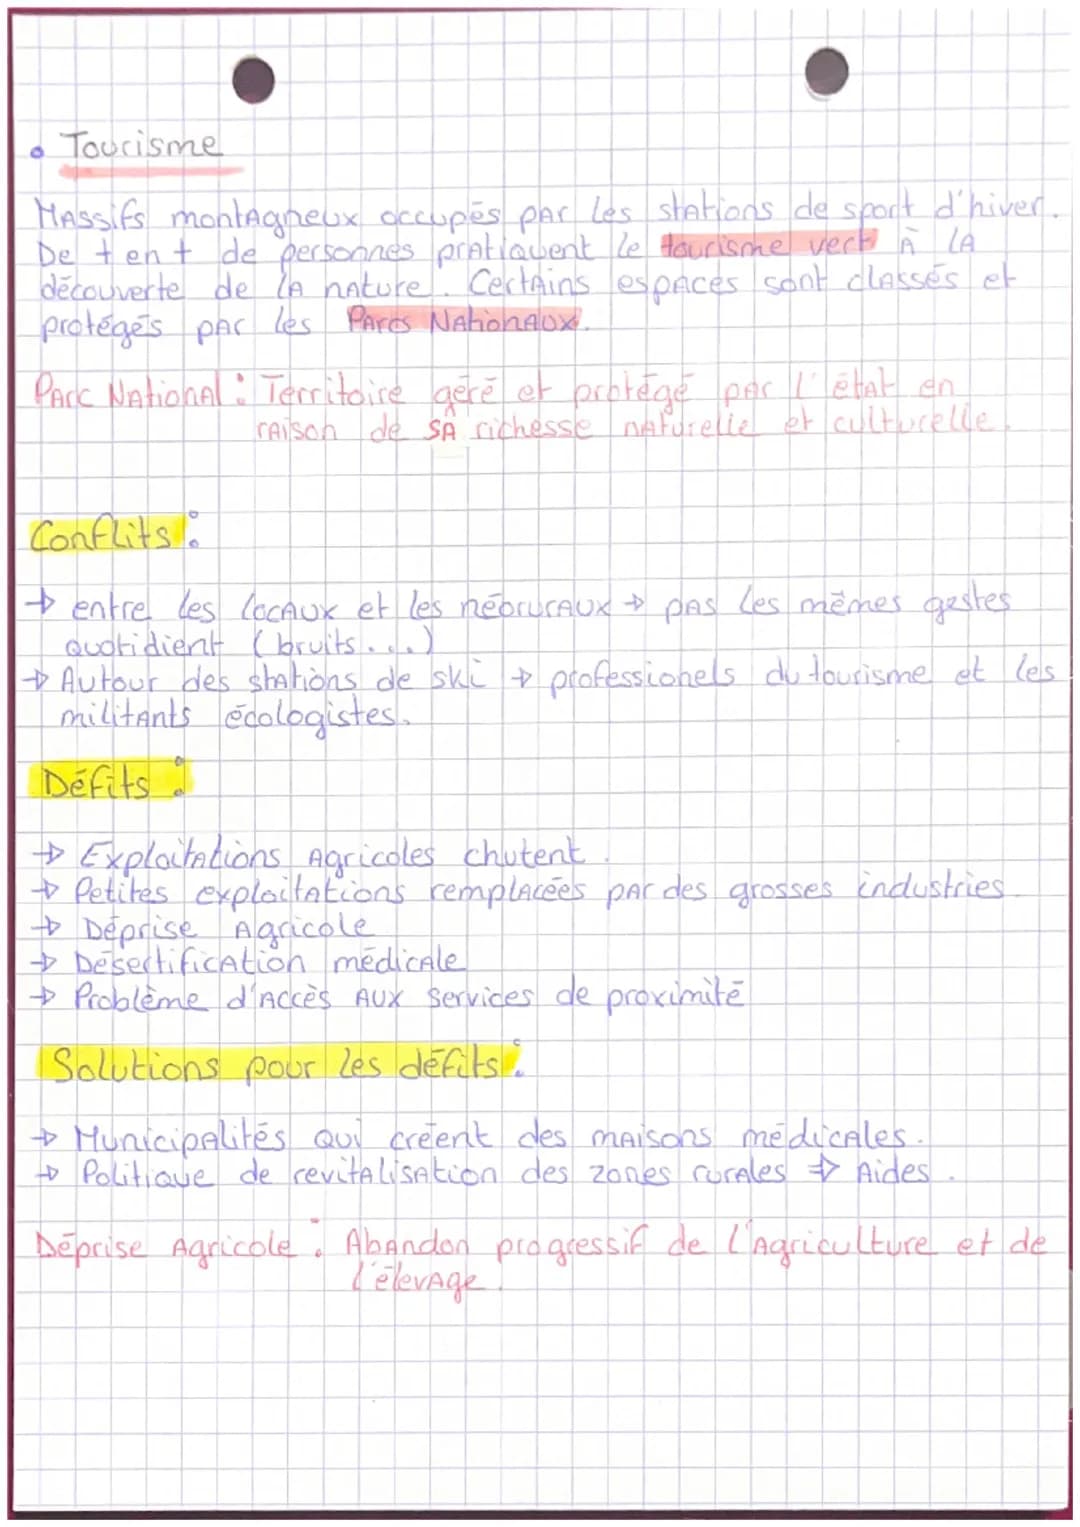 • Tourisme
Massifs montagneux occupés par les stations de sport d'hiver.
De + en + de personnes pratiquent le tourisme vert à la
découverte de la nature. Certains espaces sont classés et
protégés par les Parcs Nationaux.
Parc National : Territoire géré et protégé par l'état en
raison de sa richesse naturelle et culturelle.
Conflits :
→ entre les locaux et les néoruraux → pas les mêmes gestes
quotidient (bruits...)
→ Autour des stations de ski → professionels du tourisme et les
militants écologistes.
Défits :
→ Exploitations Agricoles chutent.
→ Petites exploitations remplacées par des grosses industries.
→ Déprise Agricole
→ Désertification médicale
→ Problème d'accès aux services de proximité
Solutions pour les défits :
→ Municipalités qui créent des maisons médicales.
→ Politique de revitalisation des zones rurales ⇒ Aides.
Déprise Agricole : Abandon progressif de l'Agriculture et de
l'élevage.